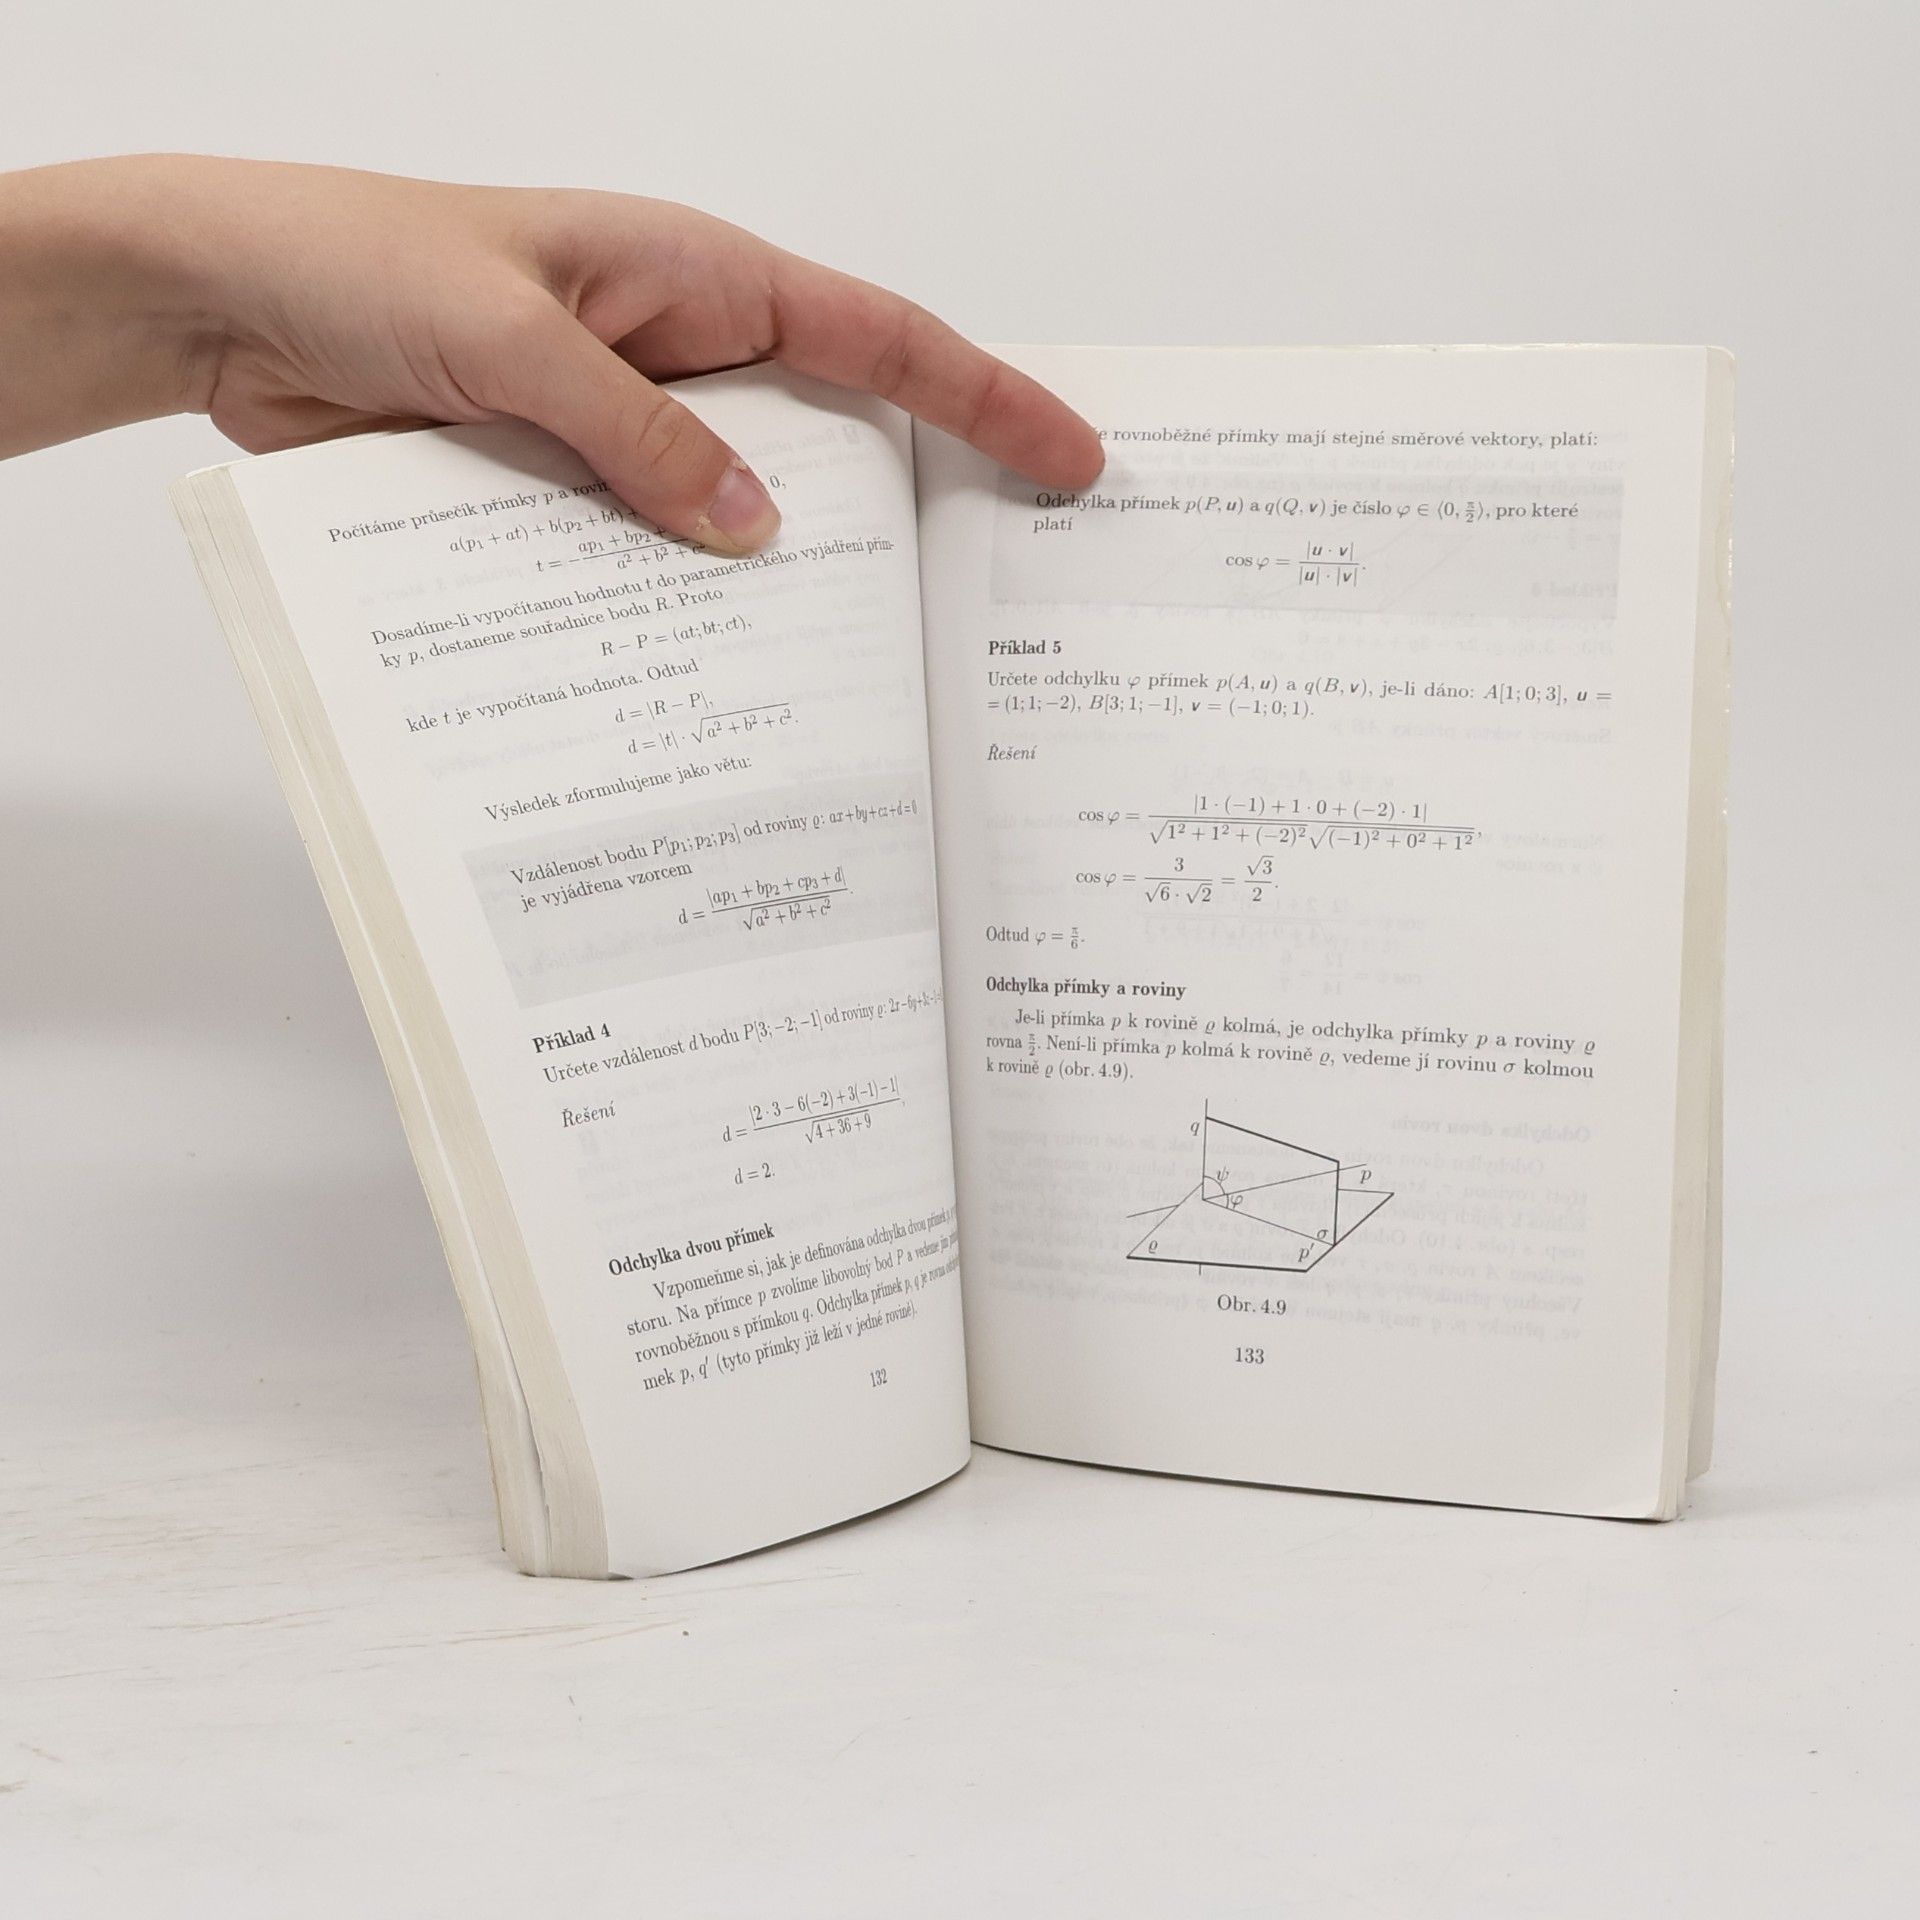 Počítáme průsečík přímky p a rovin
0,
a(p₁ + at) + b(p₂ + bt) +
t = − ap₁ + bp₂ + / a² + b² + c²
Dosadíme-li vypočítanou hodnotu t do parametrického vyjádření přím-
ky p, dostaneme souřadnice bodu R. Proto
R − P = (at; bt; ct),
kde t je vypočítaná hodnota. Odtud
d = |R − P|,
d = |t| · √(a² + b² + c²).
Výsledek zformulujeme jako větu:
Vzdálenost bodu P[p₁; p₂; p₃] od roviny ϱ: ax + by + cz + d = 0
je vyjádřena vzorcem
d = |ap₁ + bp₂ + cp₃ + d| / √(a² + b² + c²).
Příklad 4
Určete vzdálenost d bodu P[3; −2; −1] od roviny ϱ: 2x − 6y + 3z − 1
Řešení
d = |2 · 3 − 6(−2) + 3(−1) − 1| / √(4 + 36 + 9),
d = 2.
Odchylka dvou přímek
Vzpomeňme si, jak je definována odchylka dvou přímek
storu. Na přímce p zvolíme libovolný bod P a vedeme jím
rovnoběžnou s přímkou q. Odchylka přímek p, q je rovna
mek p, q′ (tyto přímky již leží v jedné rovině).
132
rovnoběžné přímky mají stejné směrové vektory, platí:
Odchylka přímek p(P, u) a q(Q, v) je číslo φ ∈ ⟨0, π/2⟩, pro které
platí
cos φ = |u · v| / |u| · |v|.
Příklad 5
Určete odchylku φ přímek p(A, u) a q(B, v), je-li dáno: A[1; 0; 3], u =
= (1; 1; −2), B[3; 1; −1], v = (−1; 0; 1).
Řešení
cos φ = |1 · (−1) + 1 · 0 + (−2) · 1| / √(1² + 1² + (−2)²) √((−1)² + 0² + 1²),
cos φ = 3 / √6 · √2 = √3 / 2.
Odtud φ = π/6.
Odchylka přímky a roviny
Je-li přímka p k rovině ϱ kolmá, je odchylka přímky p a roviny ϱ
rovna π/2. Není-li přímka p kolmá k rovině ϱ, vedeme jí rovinu σ kolmou
k rovině ϱ (obr. 4.9).
q
ψ
p
φ
σ
ϱ
p′
Obr. 4.9
133